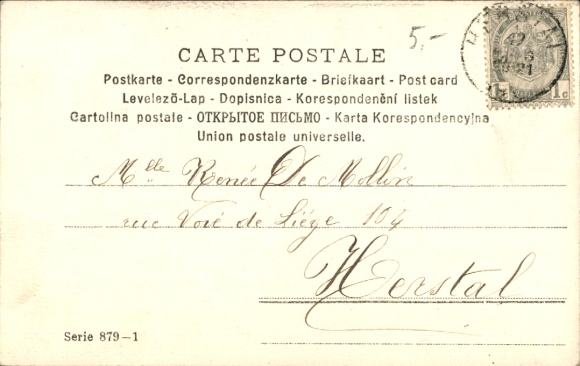 5,-
CARTE POSTALE
Postkarte - Correspondenzkarte - Briefkaart - Post card
Levelező-Lap - Dopisnica - Korespondenční listek
Cartolina postale - ОТКРЫТОЕ ПИСЬМО - Karta Korespondencyjna
Union postale universelle.
1 1c
Mlle Renée De Mollin
rue Voie de Liége 104
Herstal
Serie 879-1